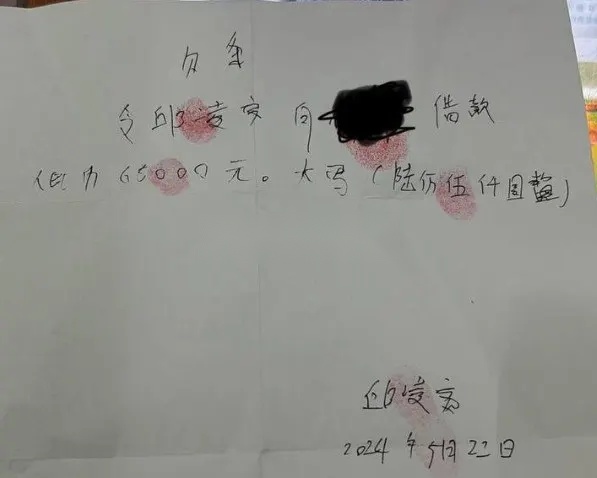 欠条
今邱凌 向 借款
人民币65000元。大写(陆万伍仟圆整)
邱凌
2024年5月22日